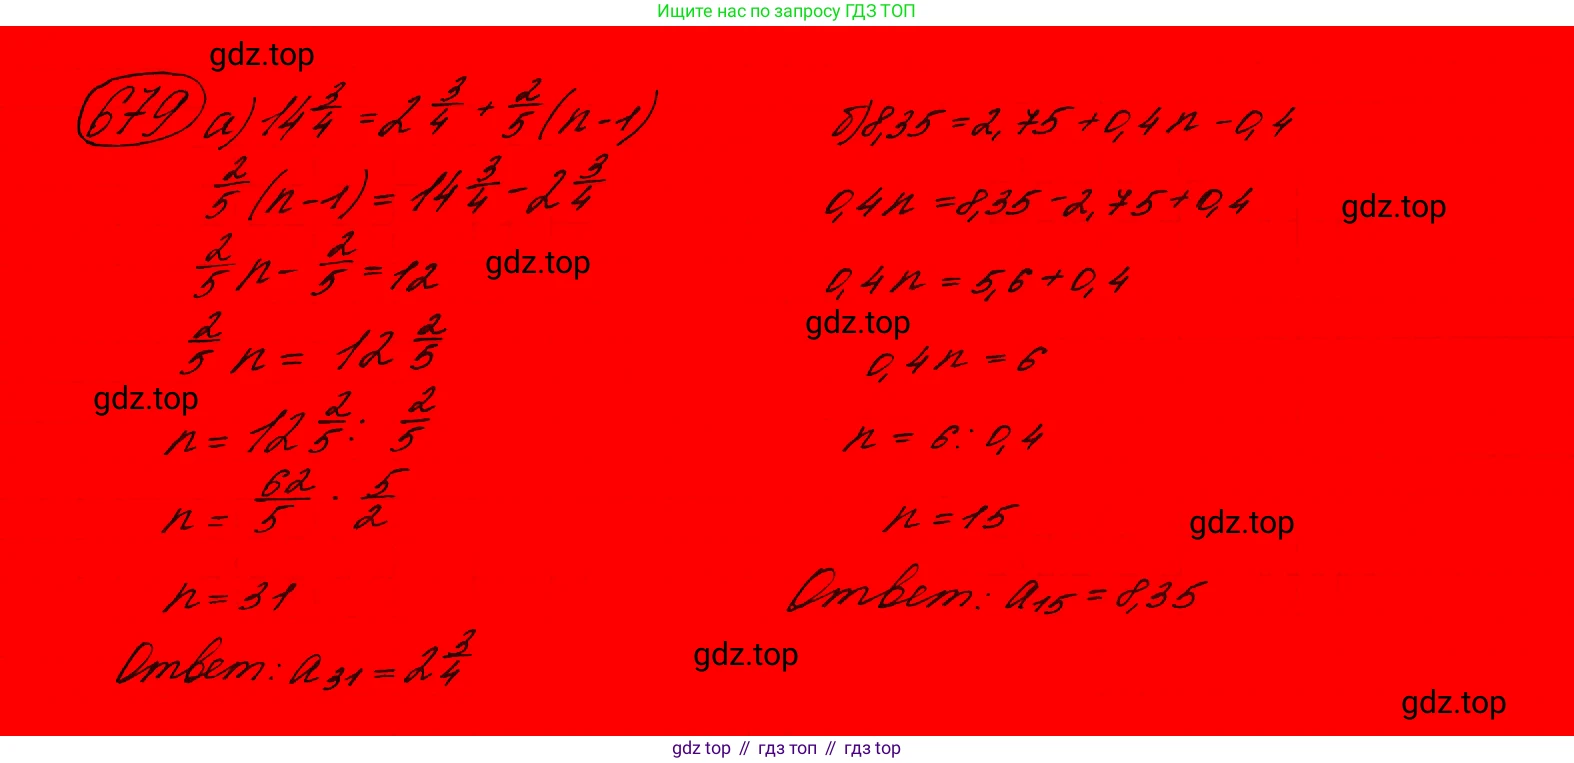 Ищите нас по запросу ГДЗ ТОП
gdz.top
679 а) 14 3/4 = 2 3/4 + 2/5 (n-1)
2/5 (n-1) = 14 3/4 - 2 3/4
2/5 n - 2/5 = 12
gdz.top
2/5 n = 12 2/5
gdz.top
n = 12 2/5 : 2/5
n = 62/5 · 5/2
n = 31
Ответ: a₃₁ = 2 3/4
б) 8,35 = 2,75 + 0,4n - 0,4
0,4n = 8,35 - 2,75 + 0,4
gdz.top
0,4n = 5,6 + 0,4
gdz.top
0,4n = 6
n = 6 : 0,4
n = 15
gdz.top
Ответ: a₁₅ = 8,35
gdz.top
gdz.top
gdz top // гдз топ // гдз top